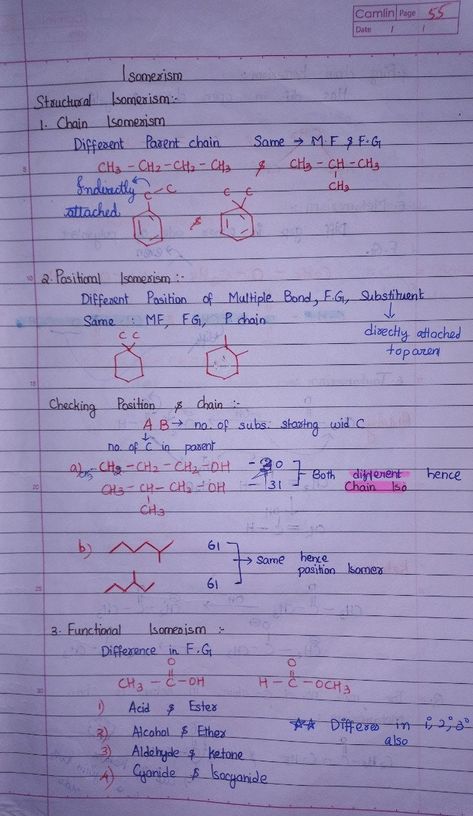 Camlin Page 55
Date / /
Isomerism
Structural Isomerism:-
1. Chain Isomerism
Different Parent chain Same → M.F & F.G
CH3 - CH2 - CH2 - CH3 & CH3 - CH - CH3
CH3
Indirectly attached
C - C
C C
&
2. Positional Isomerism :-
Different Position of Multiple Bond, F.G, Substituent
Same : MF, FG, P.chain
directly attached
to paren
C C
Checking Position & chain :-
A B → no. of subs. starting wid C
no. of C in parent
a) CH3 - CH2 - CH2 - OH - 30
CH3 - CH - CH2 - OH - 31
CH3
Both different hence
Chain Iso
b) 61
61
→ same hence
position Isomer
3. Functional Isomerism :-
Difference in F.G
O O
CH3 - C - OH H - C - OCH3
1) Acid & Ester
2) Alcohol & Ether
3) Aldehyde & ketone
4) Cyanide & Isocyanide
★★ Differes in 1°, 2°, 3°
also